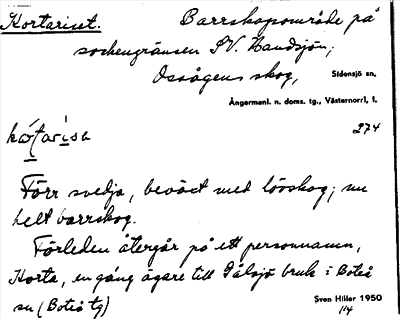 Kortariset. Barrskogsområde på
sockengränsen SV. Handsjön,
Osaågens skog, Sidensjö sn,
Ångermanl. n. doms. tg., Västernorrl. l.
274
Förr svedja, beväxt med lövskog; nu
helt barrskog.
Förleden återgår på ett personnamn,
Korta, en gång ägare till Gålsjö bruk i Boteå
sn (Boteå tg)
Sven Hiller 1950